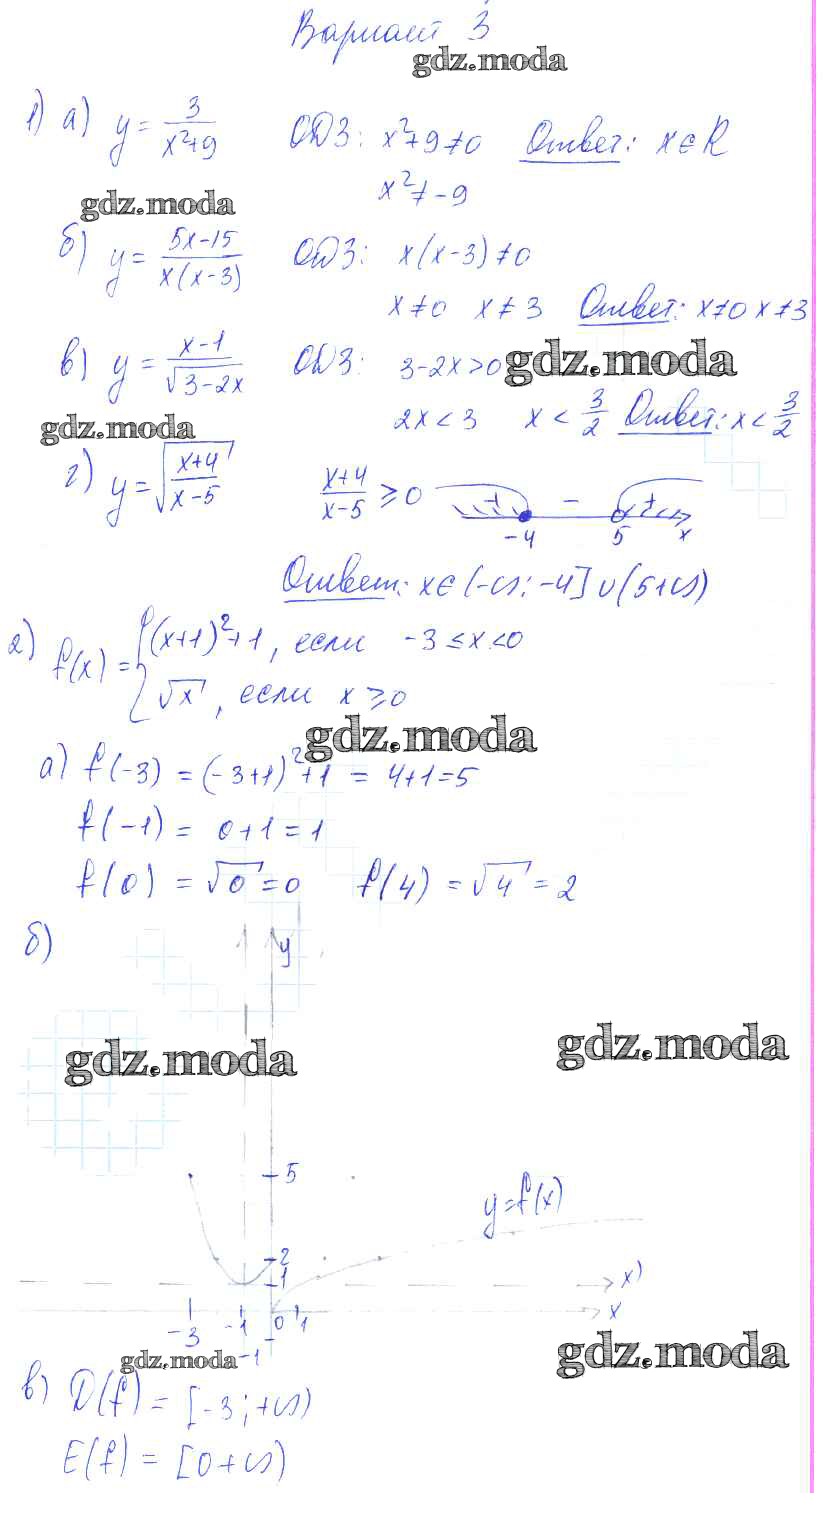 Вариант 3
gdz.moda
1) а) y = 3/(x²+9) ОДЗ: x²+9≠0 Ответ: x∈R
x²≠-9
gdz.moda
б) y = (5x-15)/(x(x-3)) ОДЗ: x(x-3)≠0
x≠0 x≠3 Ответ: x≠0 x≠3
в) y = (x-1)/√(3-2x) ОДЗ: 3-2x>0 gdz.moda
2x<3 x < 3/2 Ответ: x < 3/2
gdz.moda
г) y = √((x+4)/(x-5)) (x+4)/(x-5) ≥ 0 + - +
-4 5 x
Ответ: x∈(-∞; -4]∪(5+∞)
2) f(x) = { (x+1)²+1, если -3≤x<0
√x, если x≥0
gdz.moda
а) f(-3) = (-3+1)²+1 = 4+1=5
f(-1) = 0+1=1
f(0) = √0 = 0 f(4) = √4 = 2
б) y
gdz.moda gdz.moda
5
y=f(x)
2
1 x)
-3 -1 0 1 x
-1
gdz.moda gdz.moda
в) D(f) = [-3; +∞)
E(f) = [0+∞)